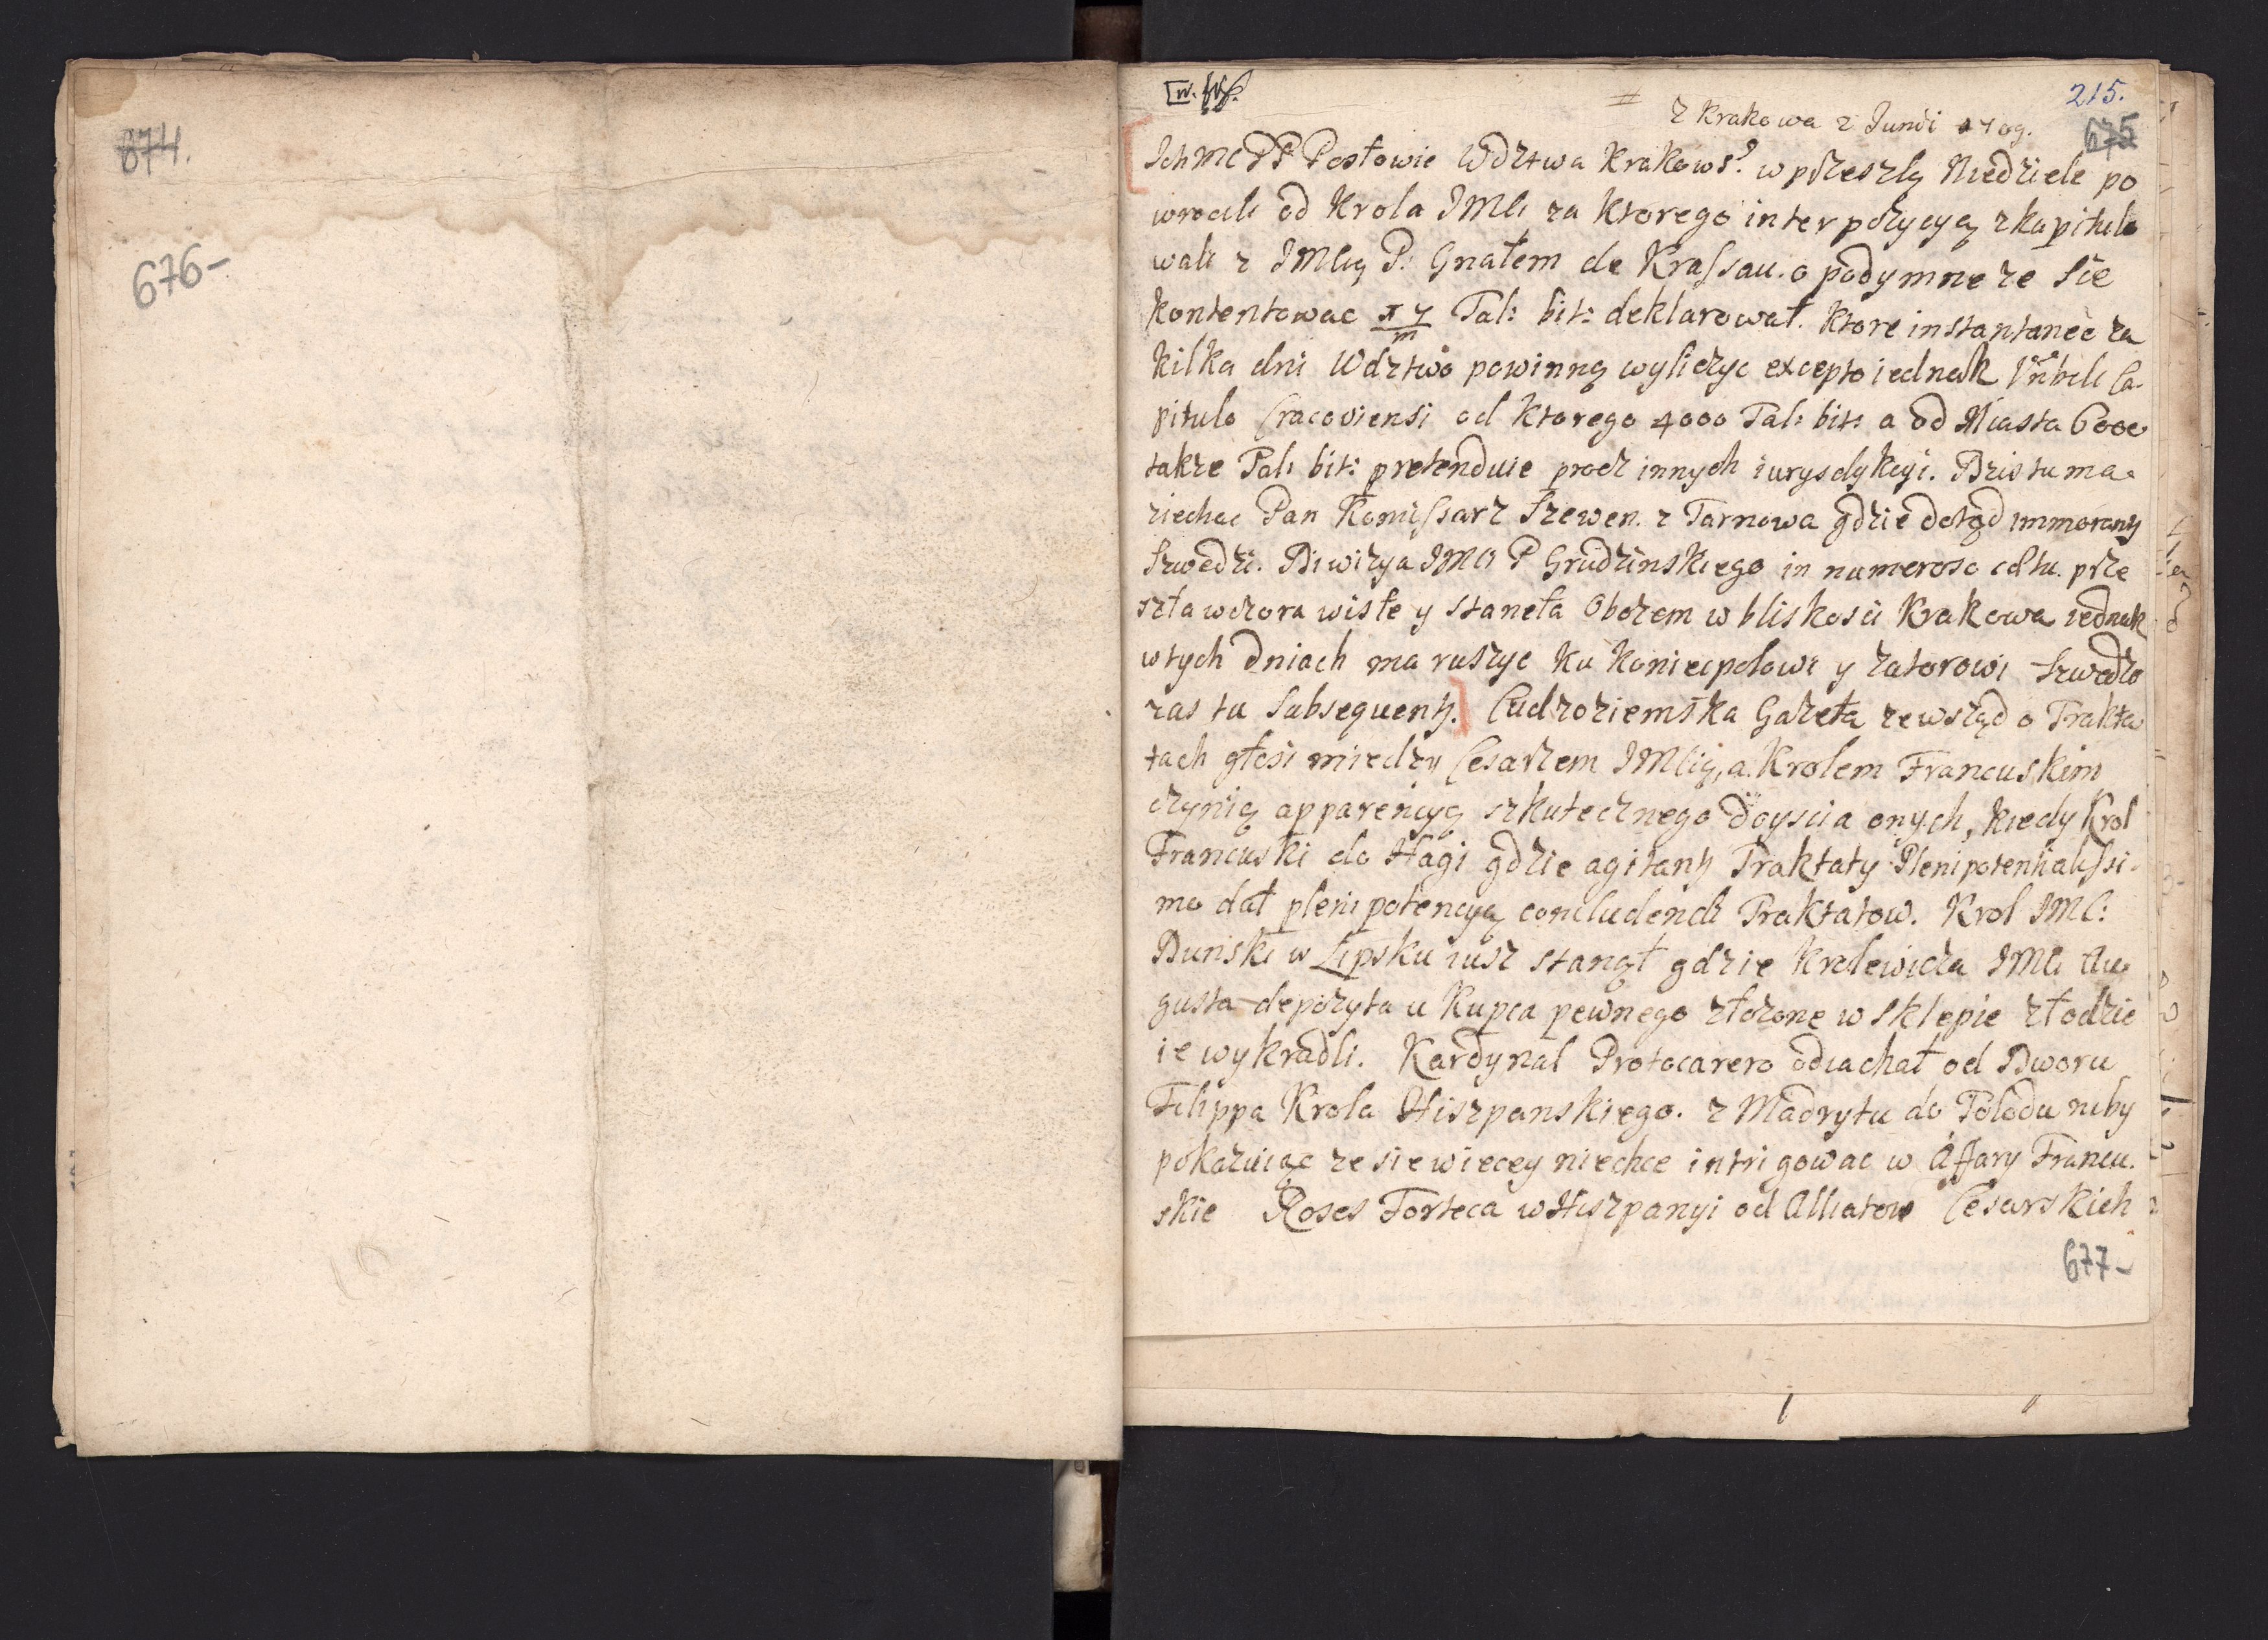 674.
676-
215.
675
z Krakowa 2 Junii 1709.
Ich Mc PP Posłowie Wdztwa Krakows? w przeszłą Niedziele po
wrocili od Krola JMCi za ktorego interpozycyą zkapitulo
wali z JMcią P. Gnałem de Krassau. o podymne ze sie
kontentowac Tal: bit: deklarował. ktore instantanee za
kilka dni Wdztwo powinną wyliczyc excepto iednak Vnbeli Ca-
pitulo Cracoviensi od ktorego 4000 Tal: bit: a od Miasta 6000
takze Tal: bit: pretenduie procz innych iurysdykcyi. Dzis tu ma
ziechac Pan Komissarz Szwen. z Tarnowa gdzie dotąd immorantz
Szwedzi. Diwizya JMCi P Grudzinskiego in numeroso cấtu prze
szła wczora wisłe y staneła Obozem w bliskosci Krakowa iednak
w tych dniach ma ruszyc ku Koniecpolowi y Zatorowi Szwedzi
zas tu subsequentz. Cudzoziemska Gazeta zewsząd o Trakta
tach głosi miedzy Cesarzem JMCią, a Krolem Francuskim
czynią apparencyą szkutecznego doyscia onych, kiedy Krol
Francuski do Hagi gdzie agitantz Traktaty Plenipotentialissi-
mo dał plenipotencyą concludendi Traktatow. Krol JMC:
Dunski w Lipsku iusz stanął gdzie Krolewicza JMCi Au
gusta depozyta u Kupca pewnego złozone w sklepie złodzie
ie wykradli. Kardynal Protocarero odiachał od Dworu
Filippa Krola Hiszpanskiego. z Madrytu do Toledu niby
pokazuiąc ze sie wiecey niechce intrigowac w Affary Francu-
skie Roses Forteca w Hiszpanyi od Alliatow Cesarskich
677-